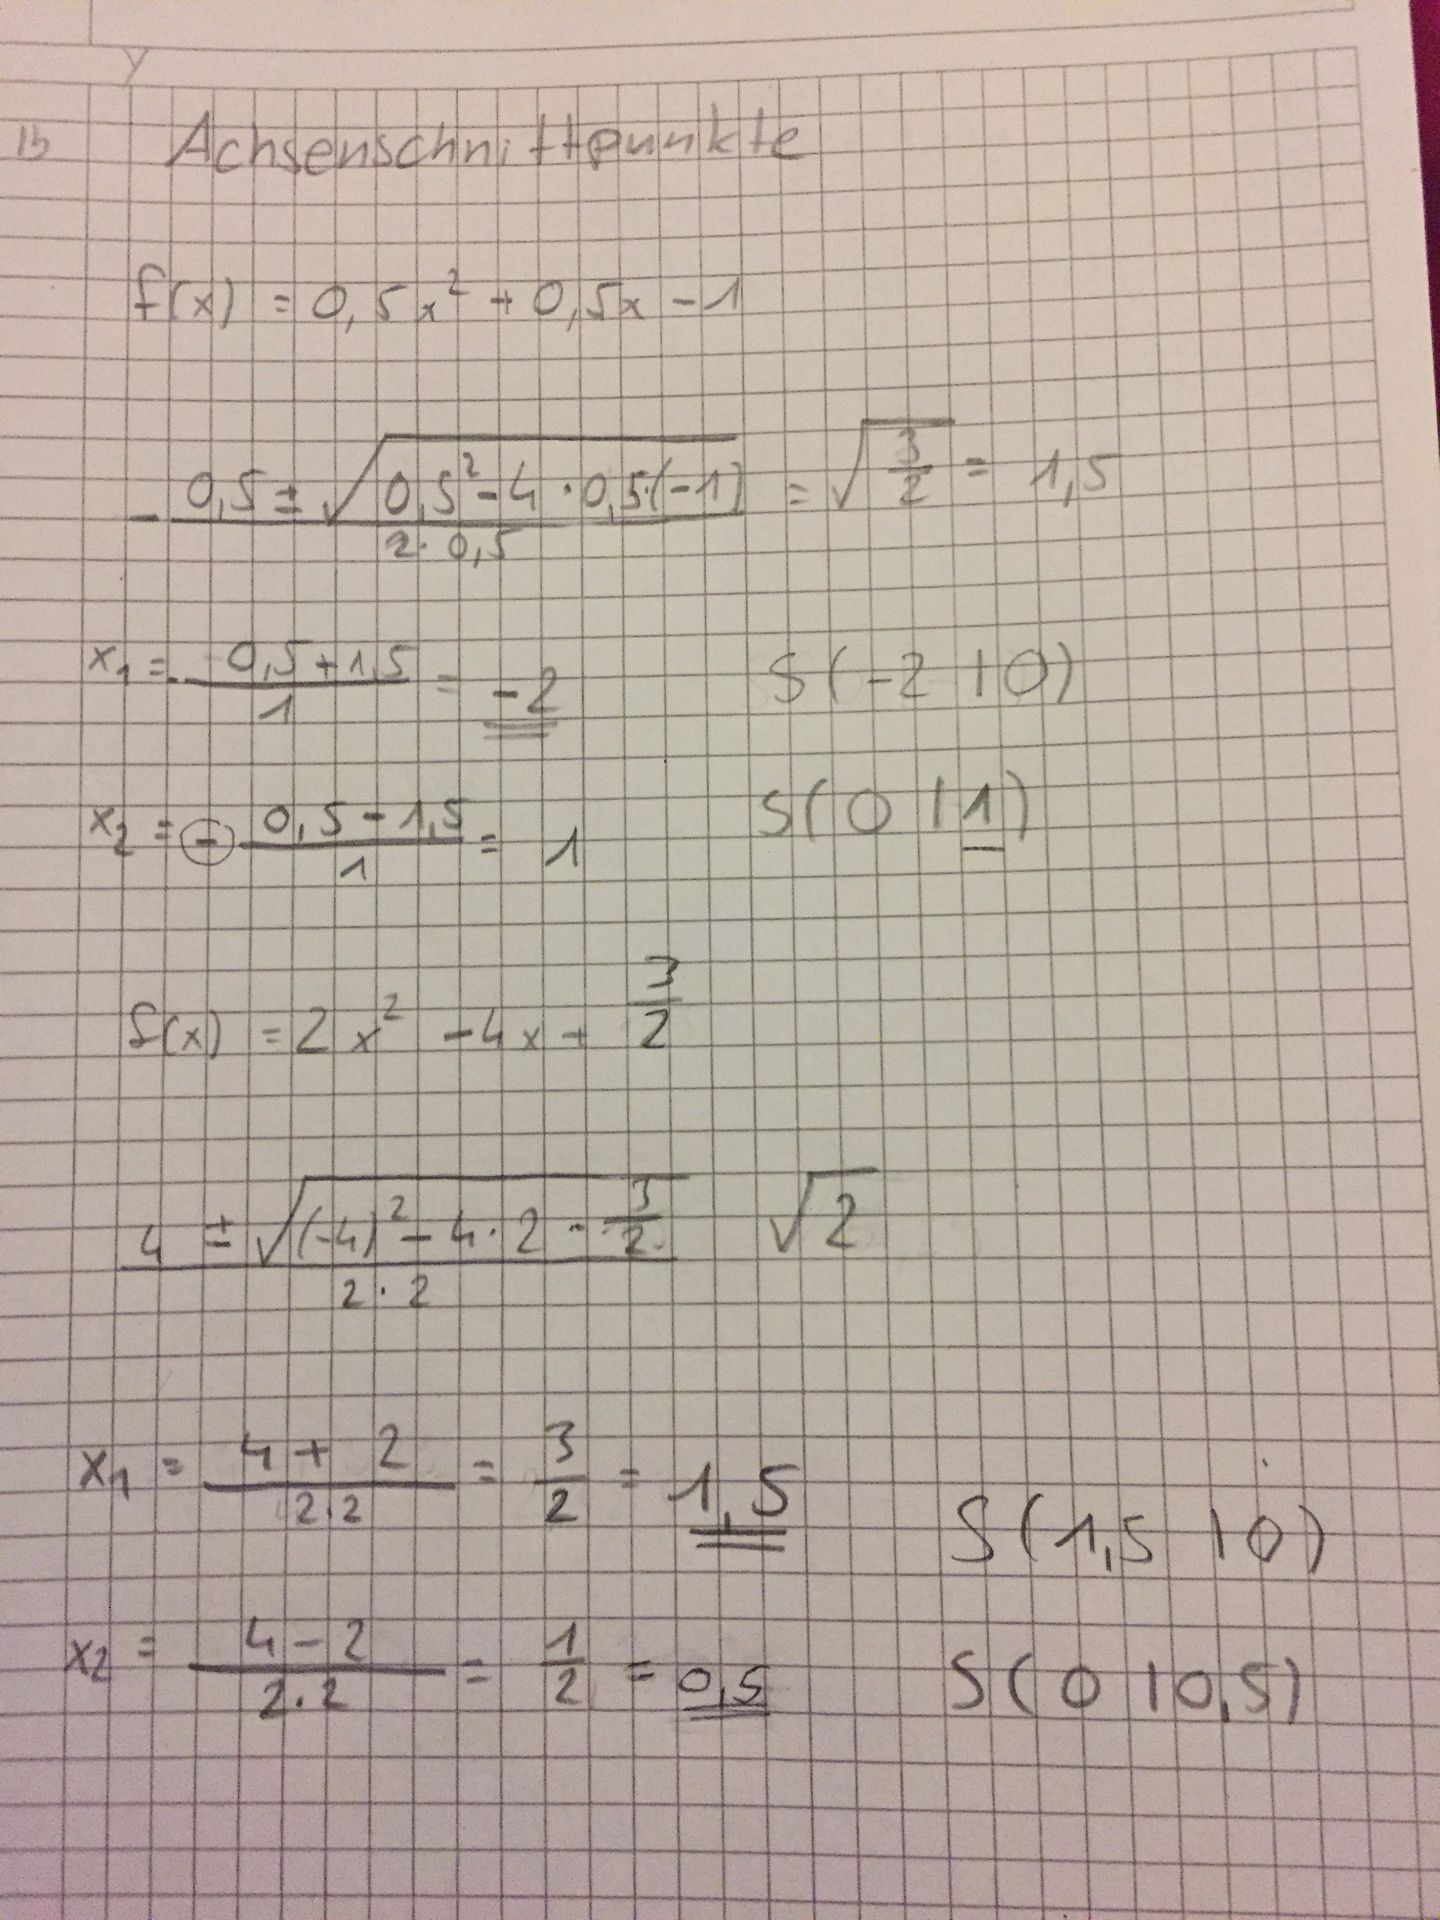 y
1b Achsenschnittpunkte
f(x) = 0,5x² + 0,5x - 1
- (0,5 ± √(0,5² - 4 · 0,5·(-1))) / (2 · 0,5) = √(3/2) = 1,5
x₁ = - (0,5 + 1,5) / 1 = -2 S(-2 | 0)
x₂ = - (0,5 - 1,5) / 1 = 1 S(0 | 1)
f(x) = 2x² - 4x + 3/2
(4 ± √((-4)² - 4 · 2 · 3/2)) / (2 · 2) √2
x₁ = (4 + 2) / (2·2) = 3/2 = 1,5 S(1,5 | 0)
x₂ = (4 - 2) / (2·2) = 1/2 = 0,5 S(0 | 0,5)